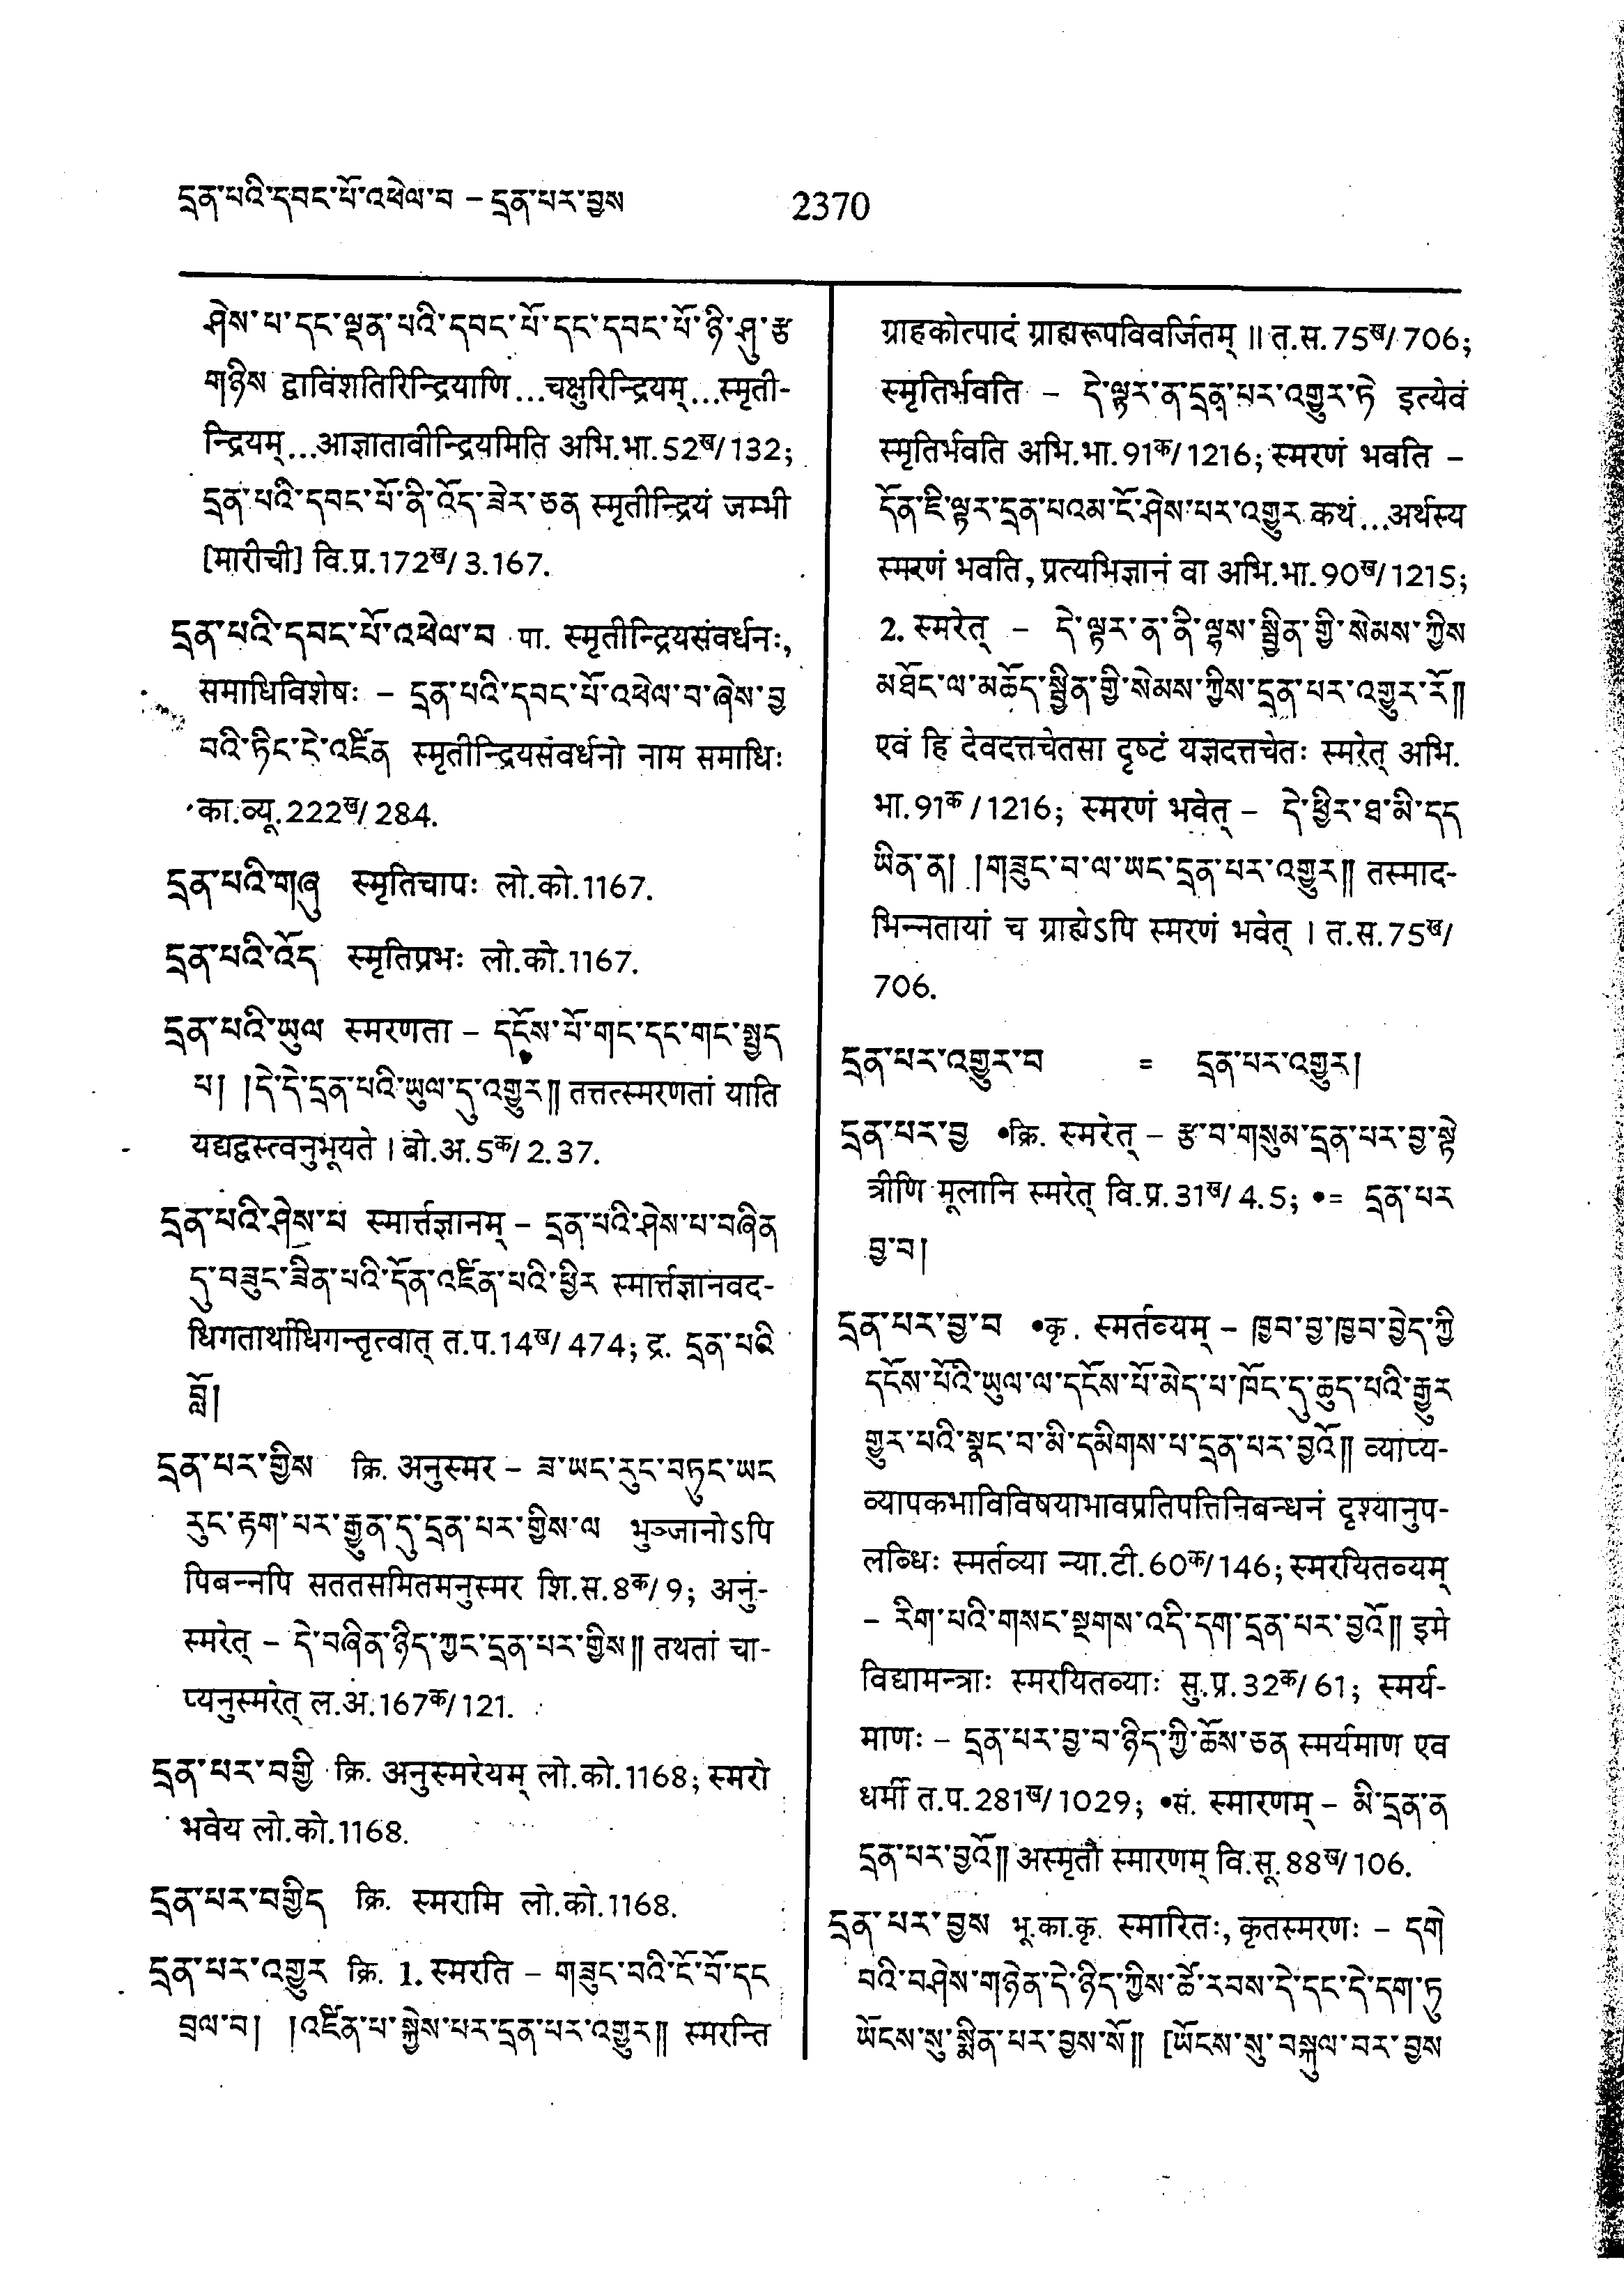 དྲན་པའི་དབང་པོ་འཕེལ་བ – དྲན་པར་བྱས 2370
ཤེས་པ་དང་ལྡན་པའི་དབང་པོ་དང་དབང་པོ་ཉི་ཤུ་རྩ
གཉིས द्वाविंशतिरिन्द्रियाणि...चक्षुरिन्द्रियम्...स्मृती-
न्द्रियम्...आज्ञातावीन्द्रियमिति अभि.भा.52ख/132;
དྲན་པའི་དབང་པོ་ནི་འོད་ཟེར་ཅན स्मृतीन्द्रियं जम्भी
[मारीची] वि.प्र.172ख/3.167.
དྲན་པའི་དབང་པོ་འཕེལ་བ पा. स्मृतीन्द्रियसंवर्धनः,
समाधिविशेषः – དྲན་པའི་དབང་པོ་འཕེལ་བ་ཞེས་བྱ
བའི་ཏིང་ངེ་འཛིན स्मृतीन्द्रियसंवर्धनो नाम समाधिः
का.व्यू.222ख/284.
དྲན་པའི་གཞུ स्मृतिचापः लो.को.1167.
དྲན་པའི་འོད स्मृतिप्रभः लो.को.1167.
དྲན་པའི་ཡུལ स्मरणता – དངོས་པོ་གང་དང་གང་སྤྱད
པ། །དེ་དེ་དྲན་པའི་ཡུལ་དུ་འགྱུར॥ तत्तत्स्मरणतां याति
यद्यद्वस्त्वनुभूयते । बो.अ.5क/2.37.
དྲན་པའི་ཤེས་པ स्मार्त्तज्ञानम् – དྲན་པའི་ཤེས་པ་བཞིན
དུ་བཟུང་ཟིན་པའི་དོན་འཛིན་པའི་ཕྱིར स्मार्त्तज्ञानवद-
धिगतार्थाधिगन्तृत्वात् त.प.14ख/474; द्र. དྲན་པའི
བློ།
དྲན་པར་གྱིས क्रि. अनुस्मर – ཟ་ཡང་རུང་བཏུང་ཡང
རུང་རྟག་པར་རྒྱུན་དུ་དྲན་པར་གྱིས་ལ भुञ्जानोऽपि
पिबन्नपि सततसमितमनुस्मर शि.स.8क/9; अनु-
स्मरेत् – དེ་བཞིན་ཉིད་ཀྱང་དྲན་པར་གྱིས॥ तथतां चा-
प्यनुस्मरेत् ल.अ.167क/121.
དྲན་པར་བགྱི क्रि. अनुस्मरेयम् लो.को.1168; स्मरो
भवेय लो.को.1168.
དྲན་པར་བགྱིད क्रि. स्मरामि लो.को.1168.
དྲན་པར་འགྱུར क्रि. 1. स्मरति – གཟུང་བའི་ངོ་བོ་དང
བྲལ་བ། །འཛིན་པ་སྐྱེས་པར་དྲན་པར་འགྱུར॥ स्मरन्ति
ग्राहकोत्पादं ग्राह्यरूपविवर्जितम् ॥ त.स.75ख/706;
स्मृतिर्भवति – དེ་ལྟར་ན་དྲན་པར་འགྱུར་ཏེ इत्येवं
स्मृतिर्भवति अभि.भा.91क/1216; स्मरणं भवति –
དོན་ཇི་ལྟར་དྲན་པའམ་ངོ་ཤེས་པར་འགྱུར कथं...अर्थस्य
स्मरणं भवति, प्रत्यभिज्ञानं वा अभि.भा.90ख/1215;
2. स्मरेत् – དེ་ལྟར་ན་ནི་ལྷས་སྦྱིན་གྱི་སེམས་ཀྱིས
མཐོང་ལ་མཆོད་སྦྱིན་གྱི་སེམས་ཀྱིས་དྲན་པར་འགྱུར་རོ॥
एवं हि देवदत्तचेतसा दृष्टं यज्ञदत्तचेतः स्मरेत् अभि.
भा.91क/1216; स्मरणं भवेत् – དེ་ཕྱིར་ཐ་མི་དད
ཡིན་ན། །གཟུང་བ་ལ་ཡང་དྲན་པར་འགྱུར॥ तस्माद-
भिन्नतायां च ग्राह्येऽपि स्मरणं भवेत् । त.स.75ख/
706.
དྲན་པར་འགྱུར་བ = དྲན་པར་འགྱུར།
དྲན་པར་བྱ •क्रि. स्मरेत् – རྩ་བ་གསུམ་དྲན་པར་བྱ་སྟེ
त्रीणि मूलानि स्मरेत् वि.प्र.31ख/4.5; •= དྲན་པར
བྱ་བ།
དྲན་པར་བྱ་བ •कृ. स्मर्तव्यम् – ཁྱབ་བྱ་ཁྱབ་བྱེད་ཀྱི
དངོས་པོའི་ཡུལ་ལ་དངོས་པོ་མེད་པ་ཁོང་དུ་ཆུད་པའི་རྒྱུར
གྱུར་པའི་སྣང་བ་མི་དམིགས་པ་དྲན་པར་བྱའོ॥ व्याप्य-
व्यापकभाविविषयाभावप्रतिपत्तिनिबन्धनं दृश्यानुप-
लब्धिः स्मर्तव्या न्या.टी.60क/146; स्मरयितव्यम्
– རིག་པའི་གསང་སྔགས་འདི་དག་དྲན་པར་བྱའོ॥ इमे
विद्यामन्त्राः स्मरयितव्याः सु.प्र.32क/61; स्मर्य-
माणः – དྲན་པར་བྱ་བ་ཉིད་ཀྱི་ཆོས་ཅན स्मर्यमाण एव
धर्मी त.प.281ख/1029; •सं. स्मारणम् – མི་དྲན་ན
དྲན་པར་བྱའོ॥ अस्मृतौ स्मारणम् वि.सू.88ख/106.
དྲན་པར་བྱས भू.का.कृ. स्मारितः, कृतस्मरणः – དགེ
བའི་བཤེས་གཉེན་དེ་ཉིད་ཀྱིས་ཚེ་རབས་དེ་དང་དེ་དག་ཏུ
ཡོངས་སུ་སྨིན་པར་བྱས་སོ॥ [ཡོངས་སུ་བསྐུལ་བར་བྱས